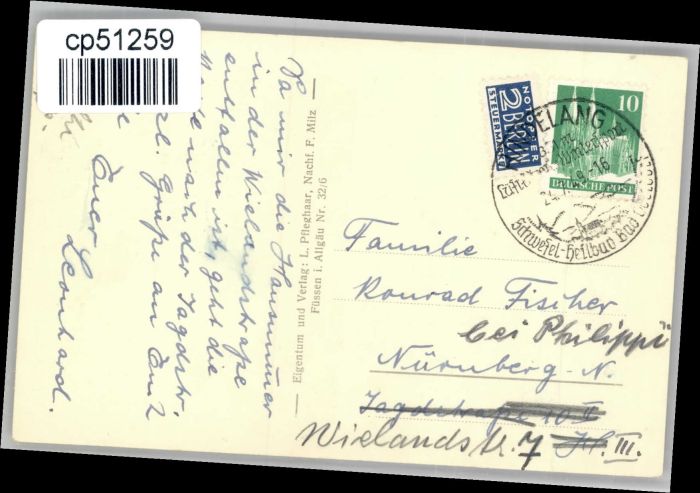 cp51259
Da mir die Hausnummer
in der Wielandstraße
entfallen ist, geht die
nach der Jagdstr.
Grüße an Euch
Euer
Leonhard.
Eigentum und Verlag: L. Pfleghaar, Nachf. F. Milz
Füssen i. Allgäu Nr. 32/6
NOTOPFER
2 BERLIN
STEUERMARKE
10
DEUTSCHE POST
Schwefel-Heilbad Bad
Familie
Konrad Fischer
bei Philippi
Nürnberg-N.
Jagdstraße 10 II
Wielandstr. 7 III.